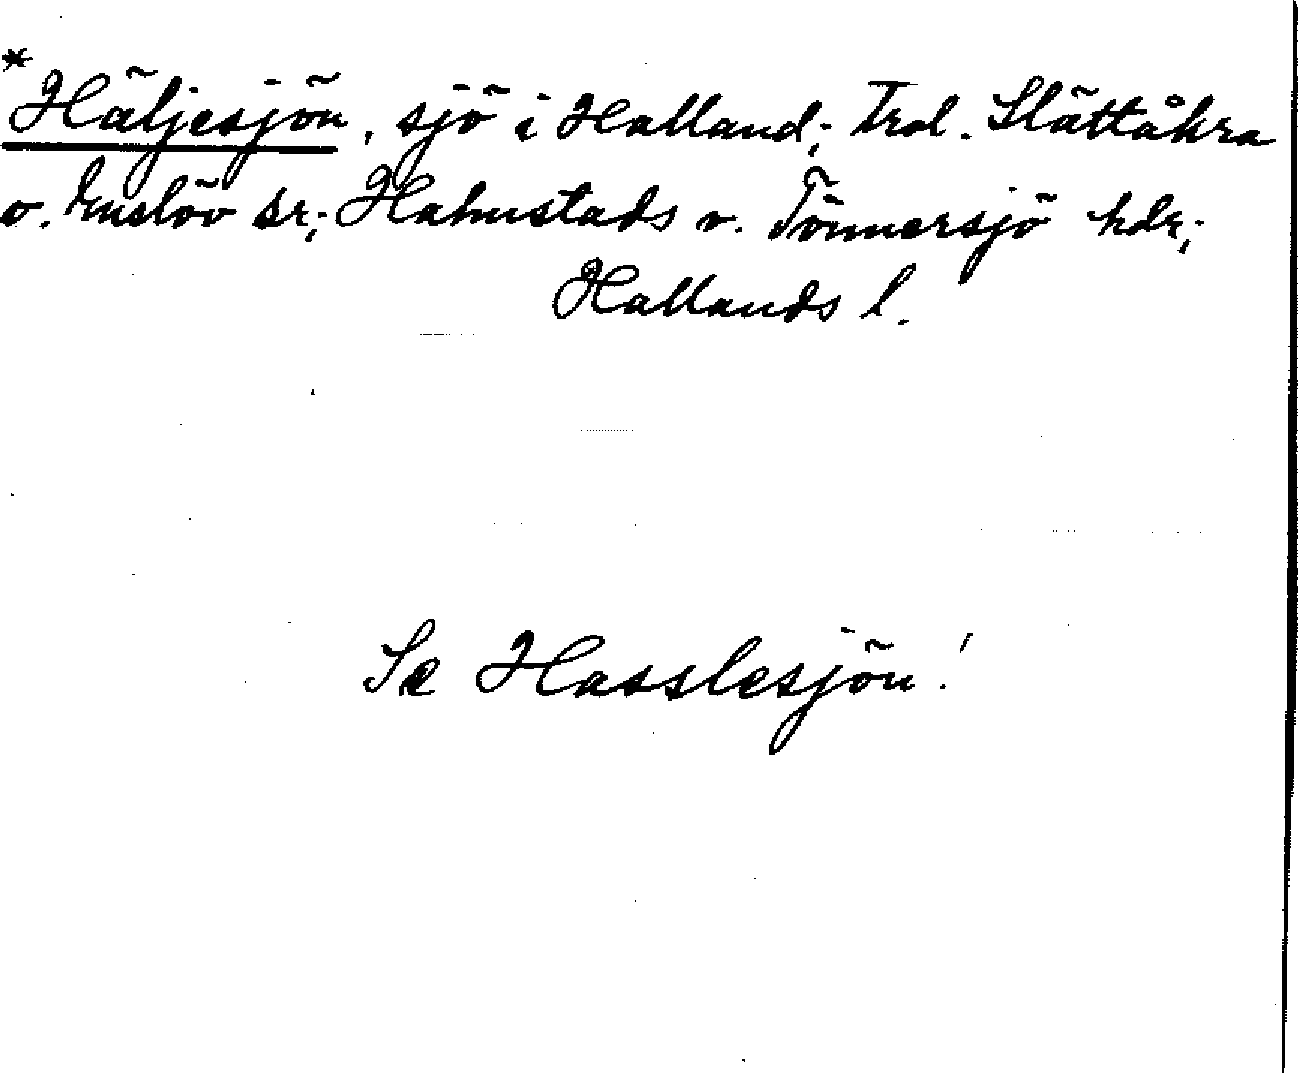 *Häljesjön, sjö i Halland; Trol. Slättåkra
o. Enslöv sr; Halmstads o. Tönnersjö hdr;
Hallands l.
Se Hasslesjön!